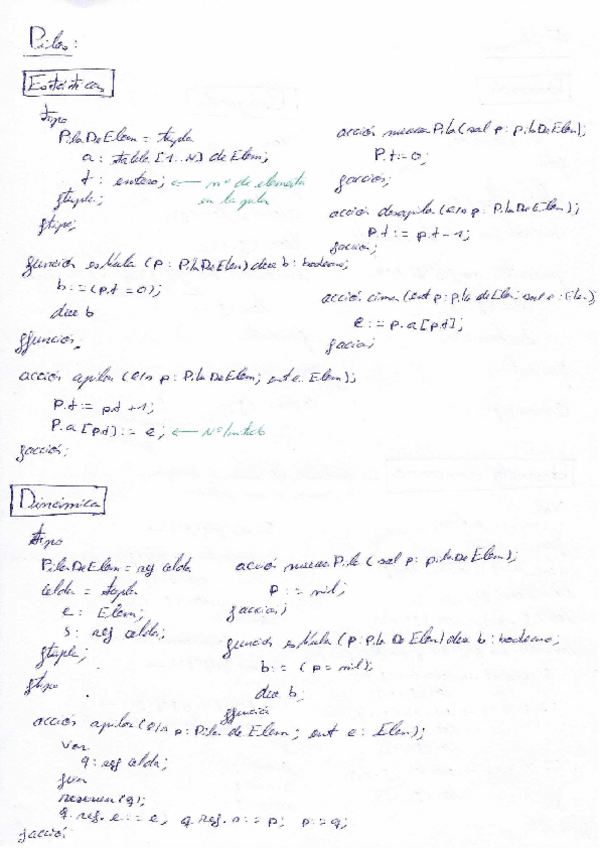 Pilas:
Estáticas
tipo
PilaDeElem = tupla
a: tabla [1..N] de Elem;
t: entero; ← nº de elementos
en la pila
ftupla;
ftipo;
acción nuevaPila (sal p: pilaDeElem);
p.t:=0;
facción;
acción desapilar (e/s p: PilaDeElem);
p.t := p.t-1;
facción;
función esNula (p: PilaDeElem) dev b: booleano;
b:=(p.t=0);
dev b
ffunción.
acción cima (ent p: pila de Elem; sal e: Elem);
e := p.a[p.t];
facción;
acción apilar (e/s p: PilaDeElem; ent e: Elem);
p.t := p.t +1;
p.a [p.t] := e; ← Nº limitado
facción;
Dinámica
tipo
PilaDeElem = ref celda
celda = tupla
e: Elem;
s: ref celda;
ftupla;
ftipo
acción nuevaPila (sal p: pilaDeElem);
p := nil;
facción;
función esNula (p: Pila De Elem) dev b: booleano;
b := (p=nil);
dev b;
ffunción
acción apilar (e/s p: Pila de Elem; ent e: Elem);
var
q: ref celda;
fvar
reservar(q);
q.ref.e := e; q.ref.s := p; p:=q;
facción;